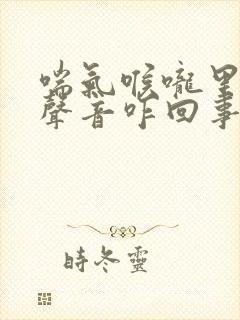 喘氣喉嚨里
聲音咋回事
時冬靈